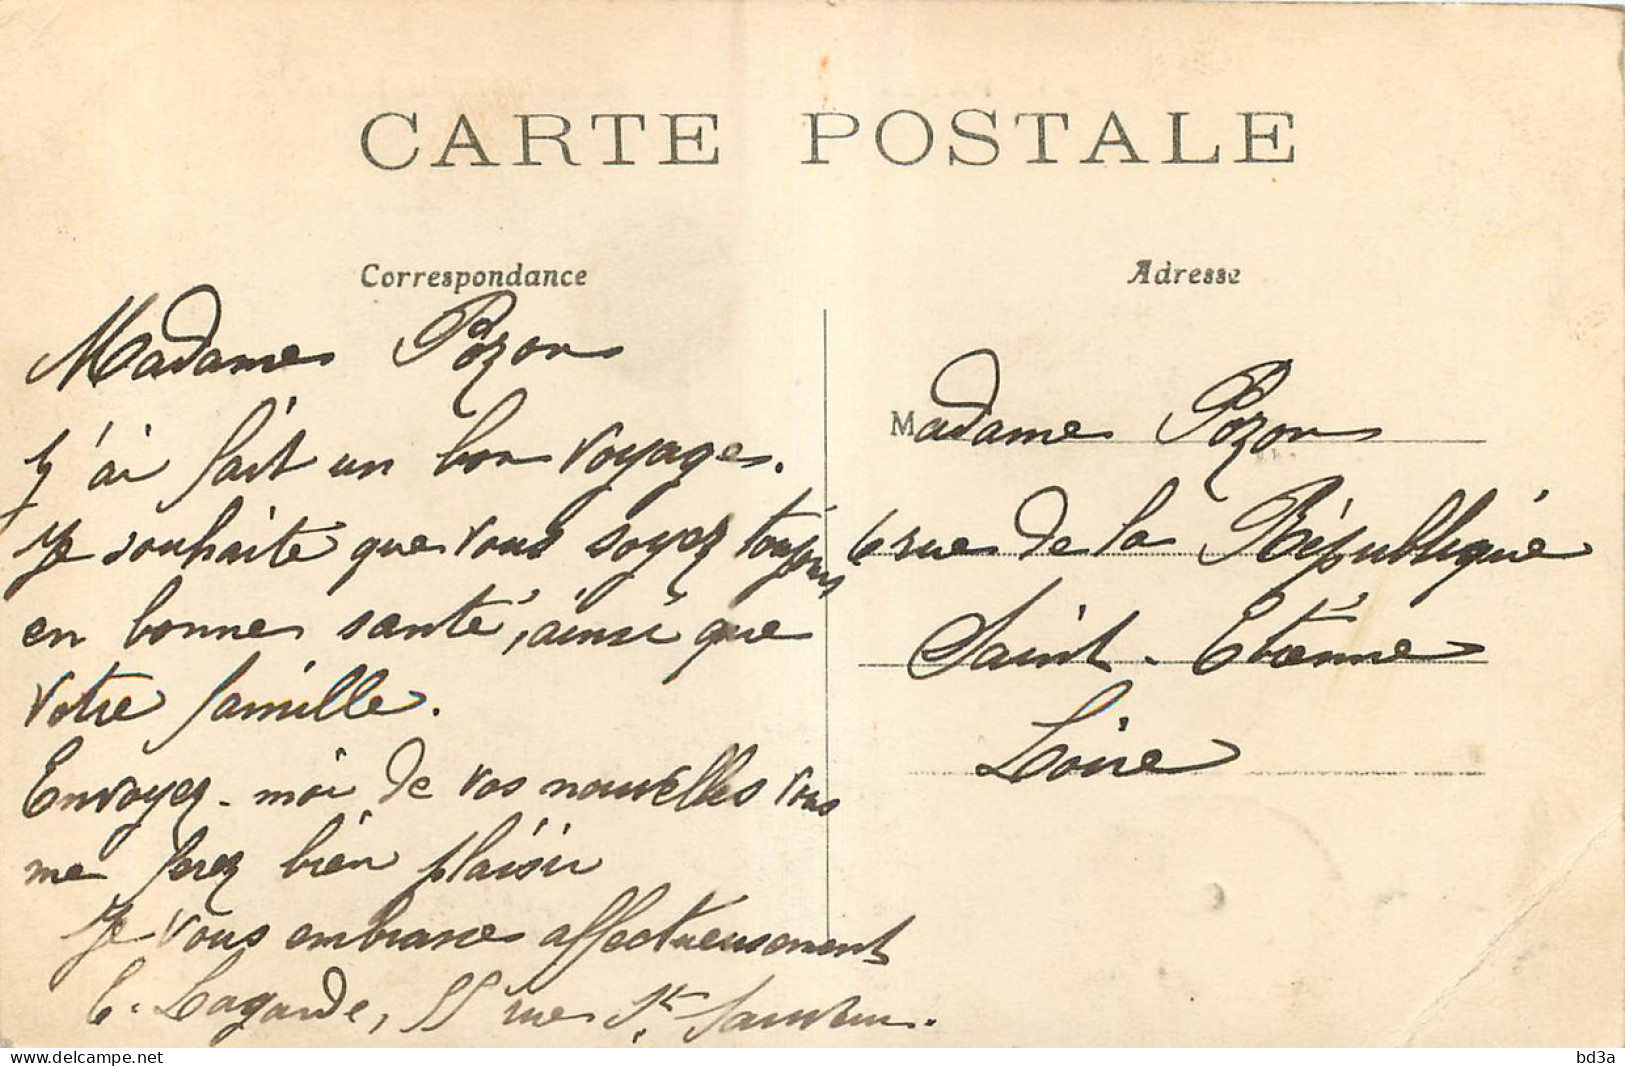 CARTE POSTALE
Correspondance
Madame Pozon
J'ai fait un bon voyage.
Je souhaite que vous soyez toujours
en bonne santé, ainsi que
votre famille.
Envoyez-moi de vos nouvelles vous
me ferez bien plaisir
Je vous embrasse affectueusement
E. Lagarde, 55 rue St
Adresse
Madame Pozon
6 rue de la République
Saint-Etienne
Loire
www.delcampe.net
bd3a